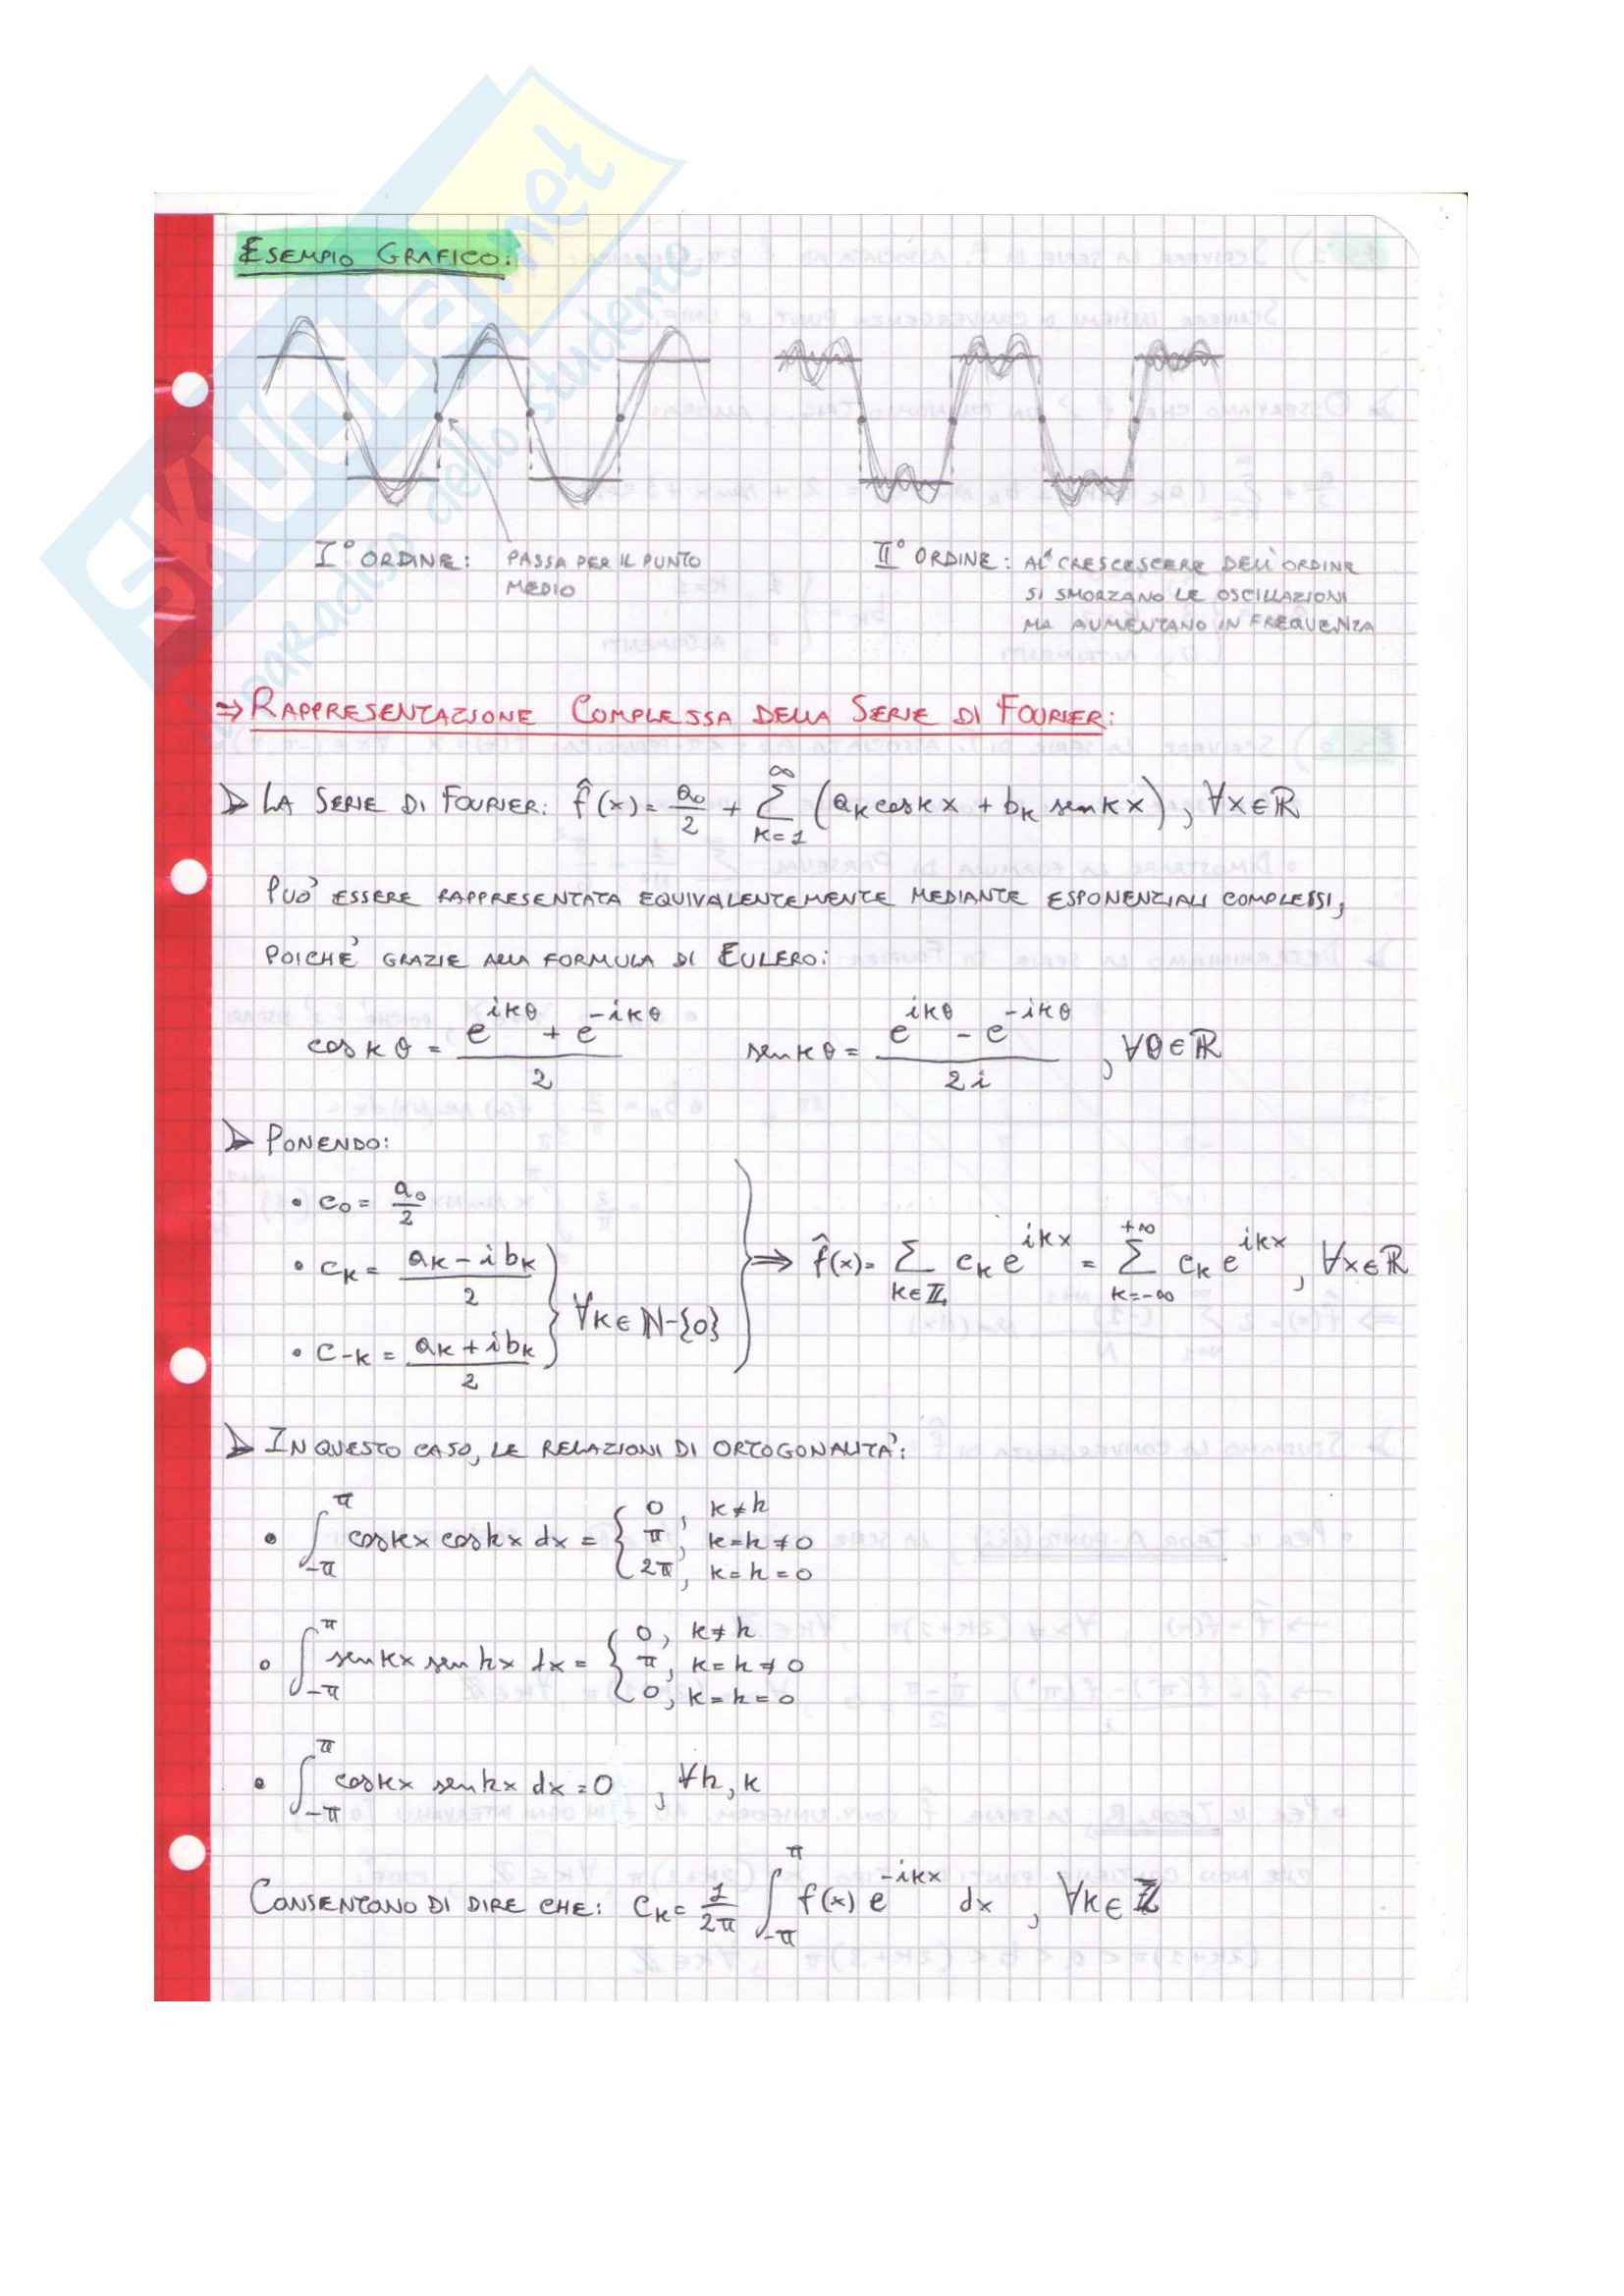 SKUOLA.net
paradiso dello studente
ESEMPIO GRAFICO:
I° ORDINE: PASSA PER IL PUNTO
MEDIO
II° ORDINE: AL CRESCESCERE DELL'ORDINE
SI SMORZANO LE OSCILLAZIONI
MA AUMENTANO IN FREQUENZA
⇒ RAPPRESENTAZIONE COMPLESSA DELLA SERIE DI FOURIER:
➤ LA SERIE DI FOURIER: f̂(x) = a₀/2 + ∑_{k=1}^{∞} (aₖ cos kx + bₖ sen kx), ∀x∈ℝ
PUO' ESSERE RAPPRESENTATA EQUIVALENTEMENTE MEDIANTE ESPONENZIALI COMPLESSI,
POICHE' GRAZIE ALLA FORMULA DI EULERO:
cos kθ = (e^{ikθ} + e^{-ikθ})/2 sen kθ = (e^{ikθ} - e^{-ikθ})/2i , ∀θ∈ℝ
➤ PONENDO:
• c₀ = a₀/2
• cₖ = (aₖ - i bₖ)/2
• c₋ₖ = (aₖ + i bₖ)/2 } ∀k∈ℕ-{0} } ⇒ f̂(x) = ∑_{k∈ℤ} cₖ e^{ikx} = ∑_{k=-∞}^{+∞} cₖ e^{ikx}, ∀x∈ℝ
➤ IN QUESTO CASO, LE RELAZIONI DI ORTOGONALITA':
• ∫_{-π}^{π} cos kx cos hx dx = { 0, k≠h
π, k=h≠0
2π, k=h=0
• ∫_{-π}^{π} sen kx sen hx dx = { 0, k≠h
π, k=h≠0
0, k=h=0
• ∫_{-π}^{π} cos kx sen hx dx = 0 , ∀h,k
CONSENTONO DI DIRE CHE: cₖ = 1/2π ∫_{-π}^{π} f(x) e^{-ikx} dx , ∀k∈ℤ